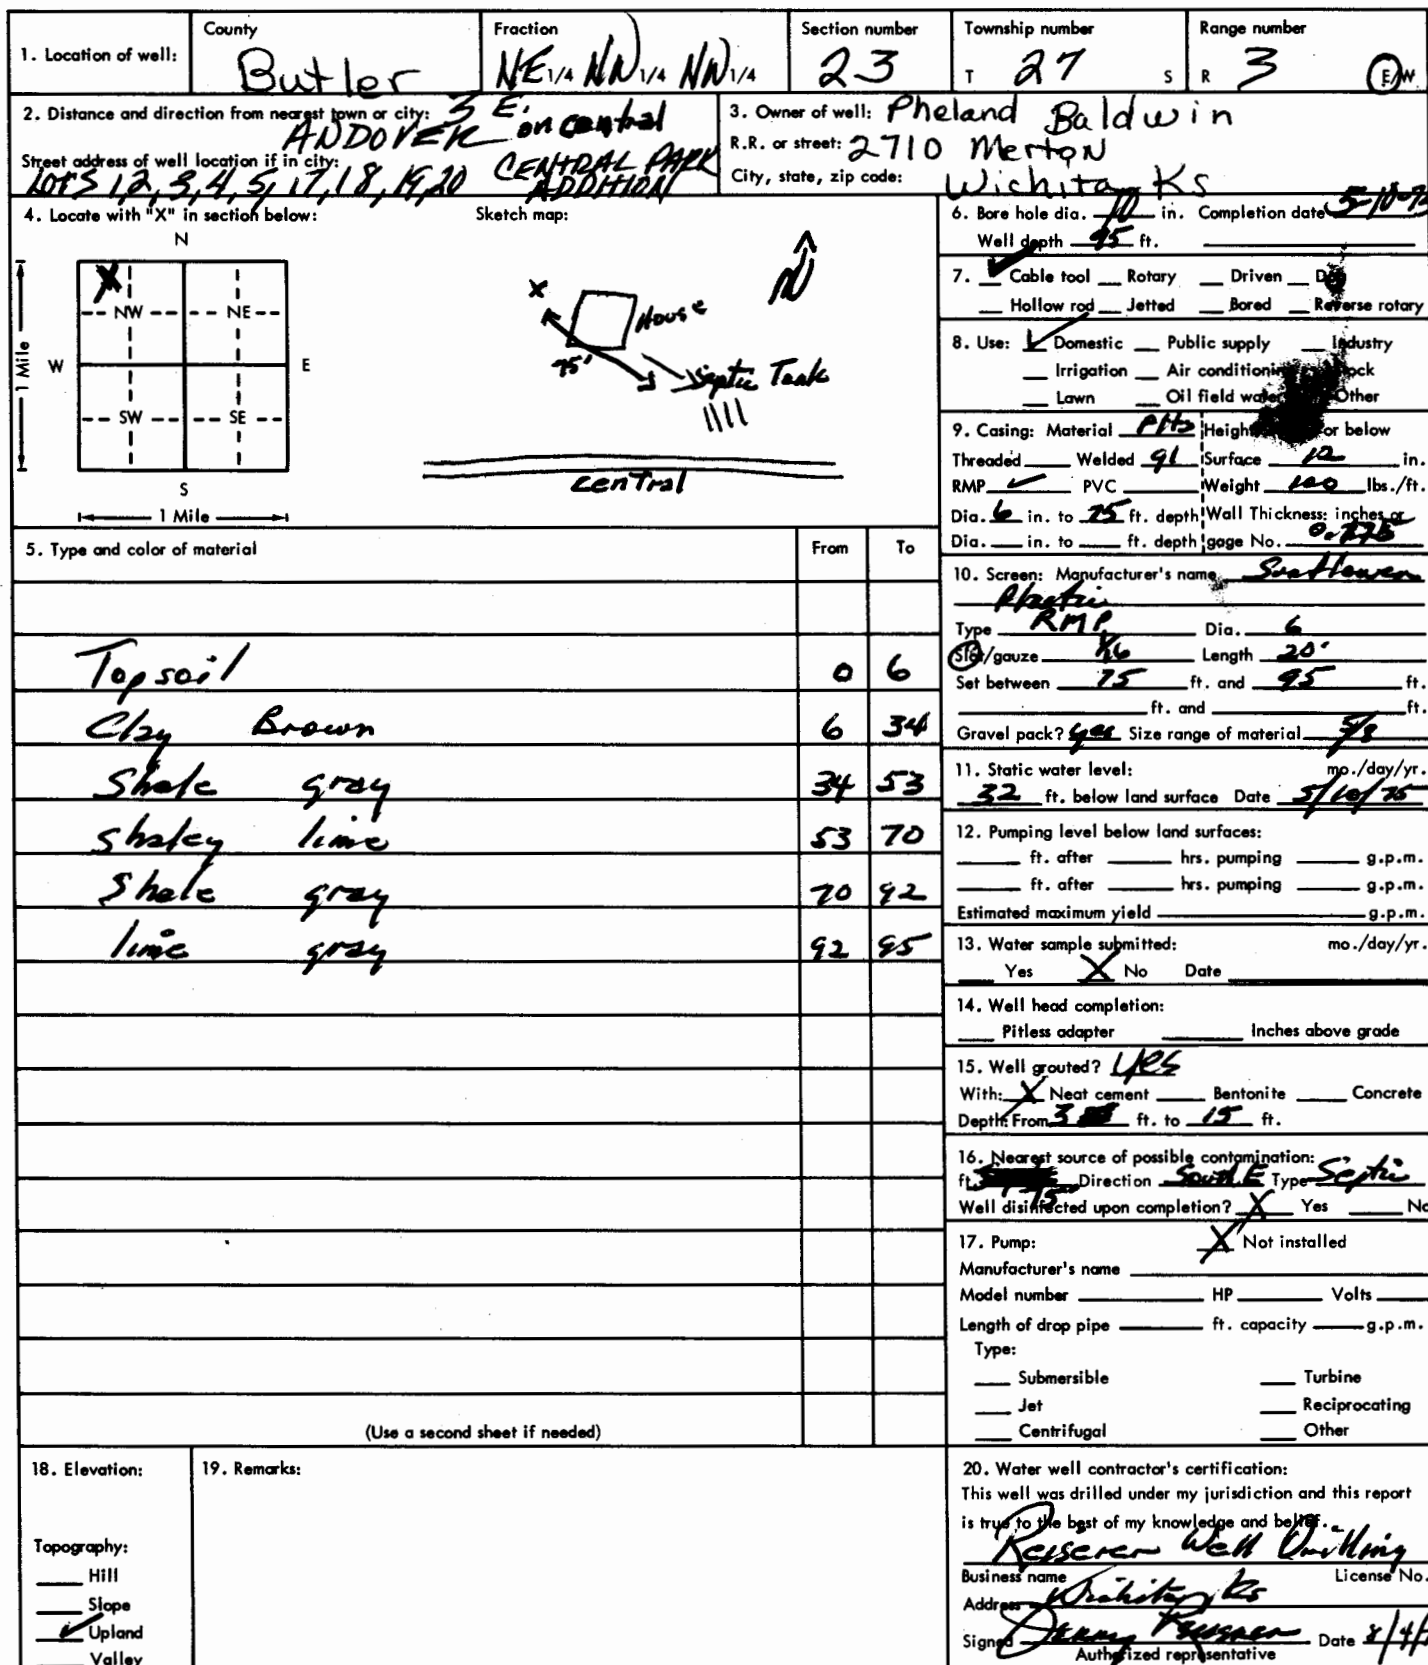 County Fraction Section number Township number Range number
1. Location of well: Butler NE 1/4 NW 1/4 NW 1/4 23 T 27 S R 3 E/W
2. Distance and direction from nearest town or city: 3 E. on central
ANDOVER
Street address of well location if in city: CENTRAL PARK ADDITION
LOTS 1,2,3,4,5,17,18,19,20
3. Owner of well: Pheland Baldwin
R.R. or street: 2710 Merton
City, state, zip code: Wichita Ks
4. Locate with "X" in section below: Sketch map:
N
X
NW NE
W E
SW SE
S
1 Mile
1 Mile
N
X
House
75'
Septic Tank
Central
5. Type and color of material From To
Topsoil 0 6
Clay Brown 6 34
Shale gray 34 53
shaley lime 53 70
Shale gray 70 92
lime gray 92 95
(Use a second sheet if needed)
6. Bore hole dia. 10 in. Completion date
Well depth 95 ft.
7. Cable tool Rotary Driven Dug
Hollow rod Jetted Bored Reverse rotary
8. Use: Domestic Public supply Industry
Irrigation Air conditioning
Lawn Oil field water Other
9. Casing: Material Height or below
Threaded Welded gl Surface 12 in.
RMP PVC Weight 100 lbs./ft.
Dia. 6 in. to 75 ft. depth Wall Thickness: inches or
Dia. in. to ft. depth gage No.
10. Screen: Manufacturer's name Sunflower
Plastic
Type RMP Dia. 6
Slot/gauze 1/16 Length 20'
Set between 75 ft. and 95 ft.
ft. and ft.
Gravel pack? yes Size range of material 5/8
11. Static water level: mo./day/yr.
32 ft. below land surface Date 5/10/75
12. Pumping level below land surfaces:
ft. after hrs. pumping g.p.m.
ft. after hrs. pumping g.p.m.
Estimated maximum yield g.p.m.
13. Water sample submitted: mo./day/yr.
Yes X No Date
14. Well head completion:
Pitless adapter Inches above grade
15. Well grouted? Yes
With: X Neat cement Bentonite Concrete
Depth: From 3 ft. to 15 ft.
16. Nearest source of possible contamination:
ft. 75 Direction South E Type Septic
Well disinfected upon completion? X Yes No
17. Pump: X Not installed
Manufacturer's name
Model number HP Volts
Length of drop pipe ft. capacity g.p.m.
Type:
Submersible Turbine
Jet Reciprocating
Centrifugal Other
18. Elevation:
Topography:
Hill
Slope
Upland
Valley
19. Remarks:
20. Water well contractor's certification:
This well was drilled under my jurisdiction and this report
is true to the best of my knowledge and belief.
Well Drilling
Business name License No.
Address Wichita, Ks
Signed Date 8/4/
Authorized representative